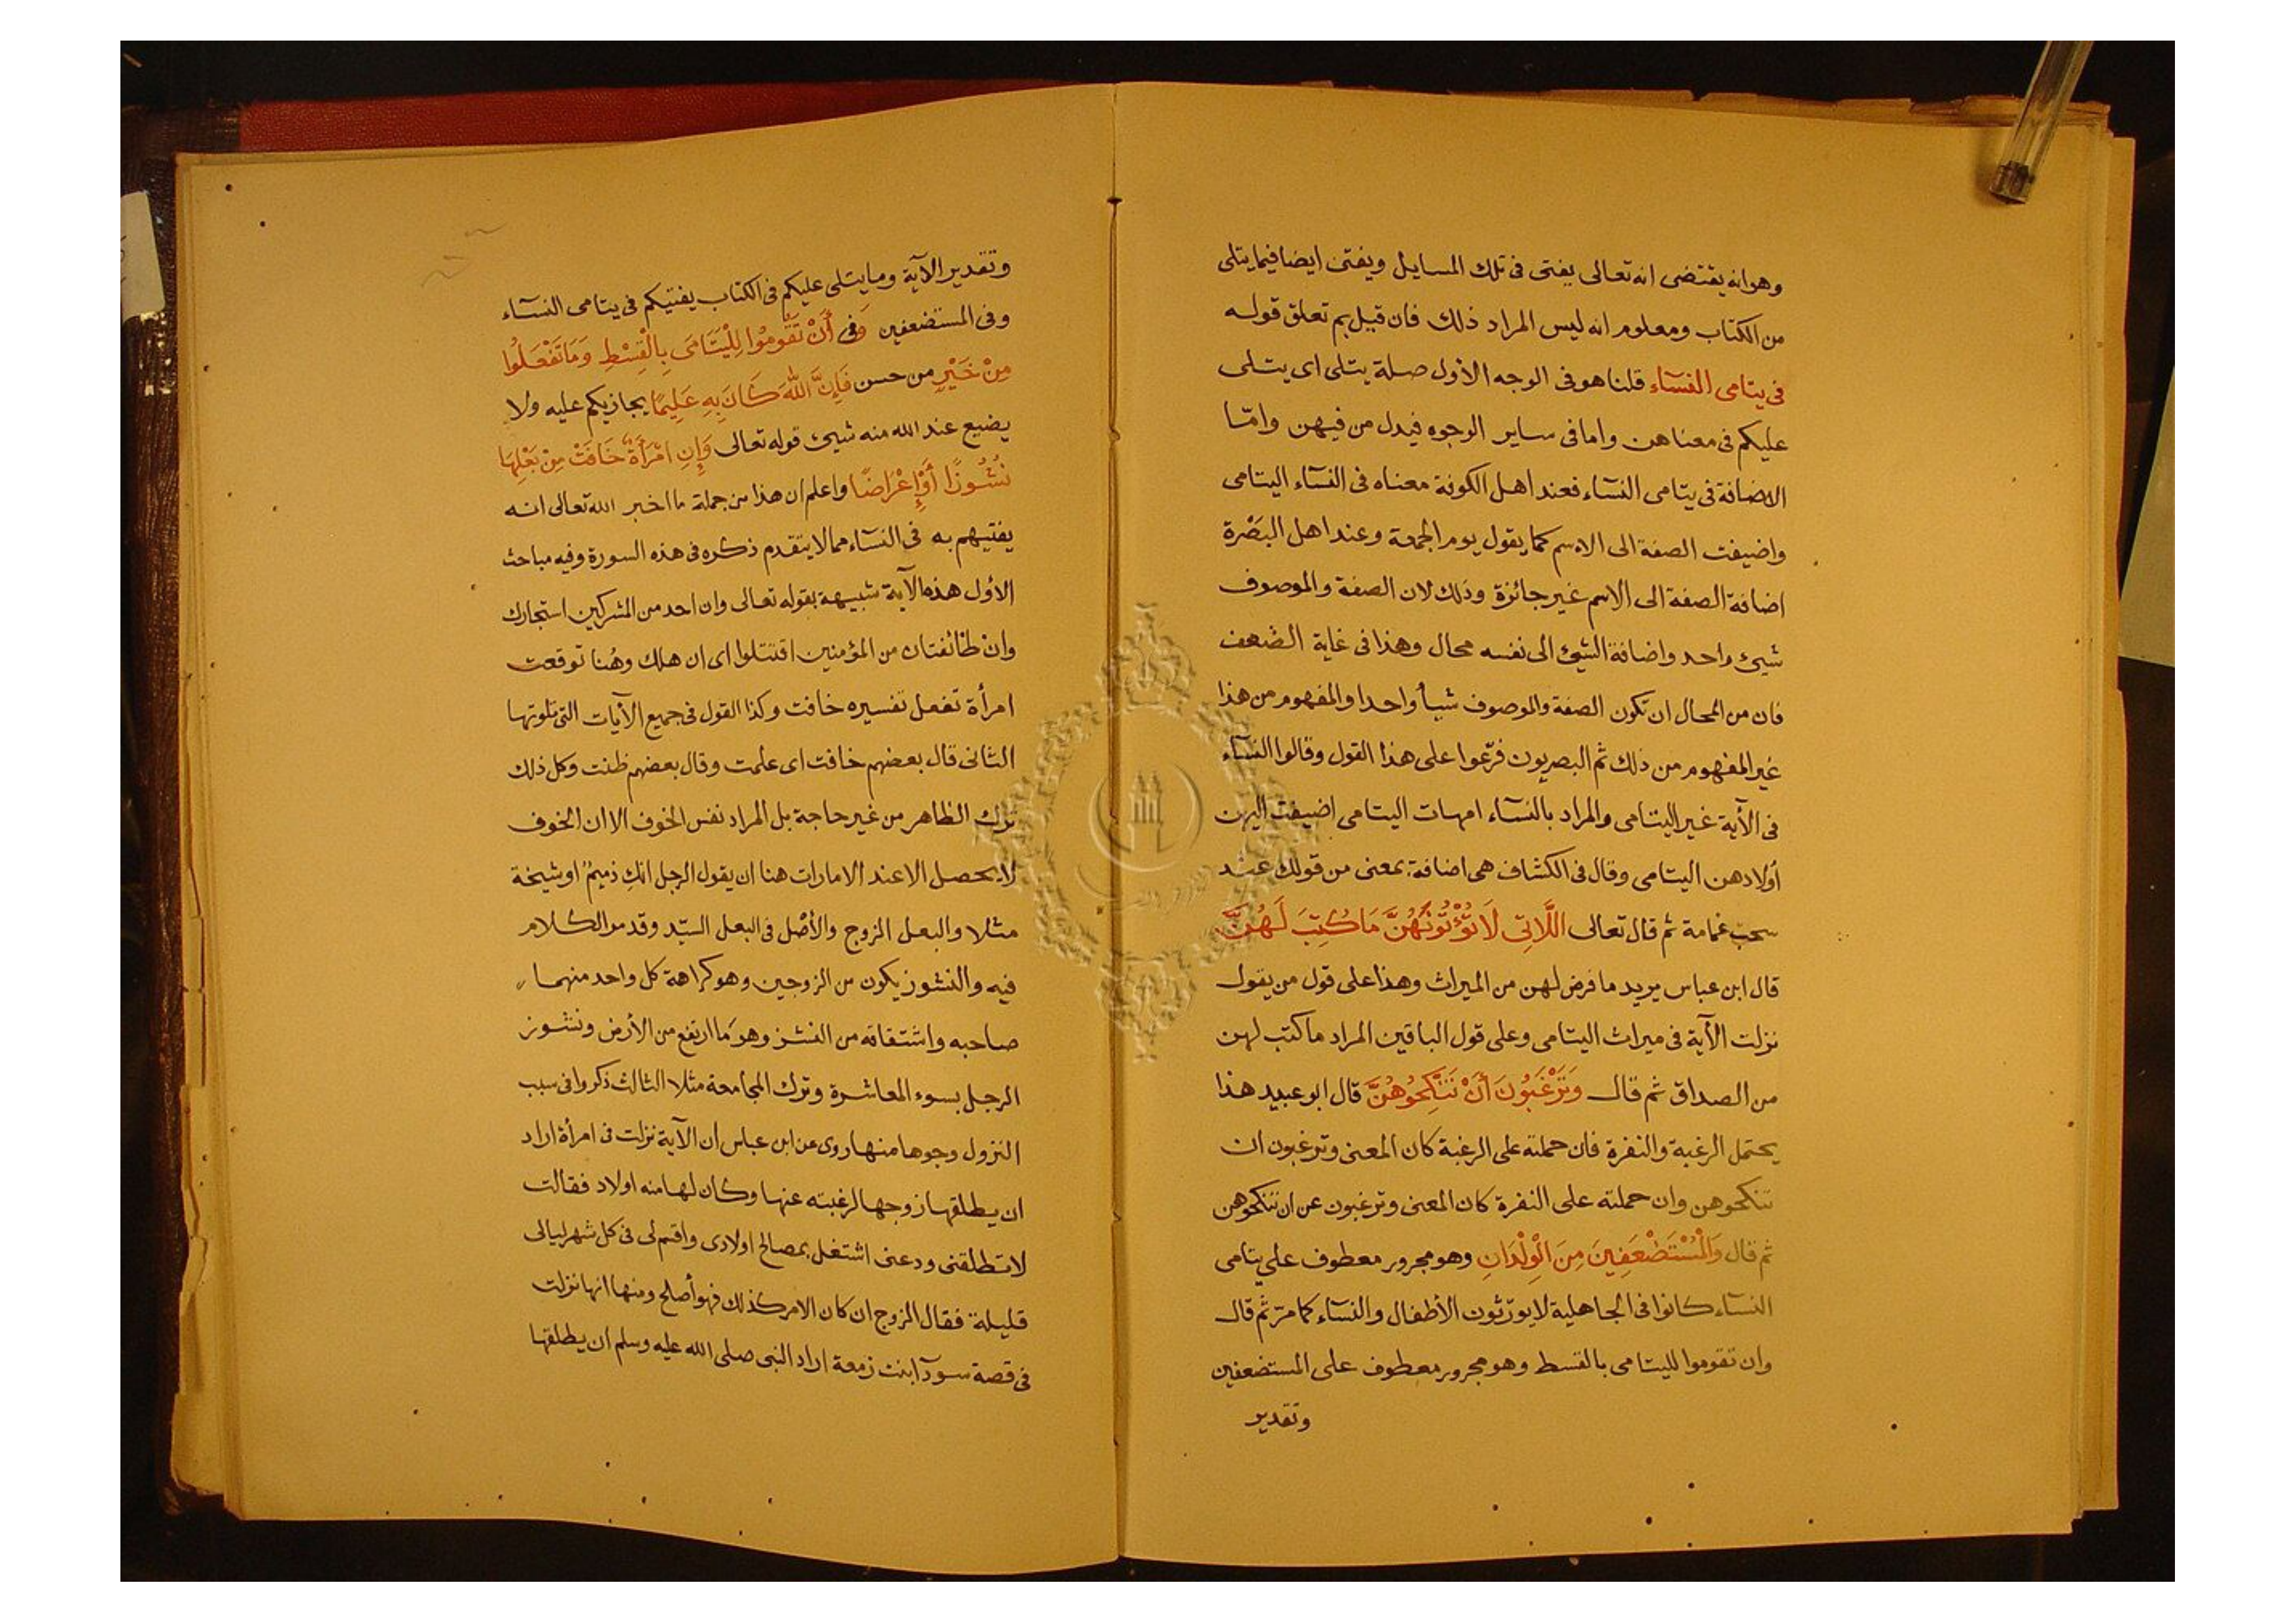 وهو انه يقتضى انه تعالى يفتى فى تلك المسايل ويفتى ايضا فيما يتلى
من الكتاب ومعلوم انه ليس المراد ذلك فان قيل بم تعلق قوله
فى يتامى النسآء قلنا هو فى الوجه الاول صلة يتلى اى يتلى
عليكم فى معناهن واما فى ساير الوجوه فبدل من فيهن وامّا
الاضافة فى يتامى النسآء فعند اهل الكوفة معناه فى النسآء اليتامى
واضيفت الصفة الى الاسم كما يقول يوم الجمعة وعند اهل البَصْرة
اضافة الصفة الى الاسم غير جائزة وذلك لان الصفة والموصوف
شيئ واحد واضافة الشيئ الى نفسه محال وهذا فى غاية الضعف
فان من المحال ان تكون الصفة والموصوف شيأ واحدا والمفهوم من هذا
غير المفهوم من ذلك ثم البصريون فرّعوا على هذا القول وقالوا النسآء
فى الآية غير اليتامى والمراد بالنسآء امهات اليتامى اضيفت اليهن
أولادهن اليتامى وقال فى الكشاف هى اضافة بمعنى من قولك عند
سحب غمامة ثم قال تعالى اللَّاتِى لَا تُؤْتُونَهُنَّ مَا كُتِبَ لَهُنَّ
قال ابن عباس يريد ما فرض لهن من الميراث وهذا على قول من يقول
نزلت الآية فى ميراث اليتامى وعلى قول الباقين المراد ما كتب لهن
من الصداق ثم قال وَتَرْغَبُونَ أَنْ تَنْكِحُوهُنَّ قال ابو عبيد هذا
يحتمل الرغبة والنفرة فان حملته على الرغبة كان المعنى وترغبون ان
تنكحوهن وان حملته على النفرة كان المعنى وترغبون عن ان تنكحوهن
ثم قال وَالْمُسْتَضْعَفِينَ مِنَ الْوِلْدَانِ وهو مجرور معطوف على يتامى
النسآء كانوا فى الجاهلية لا يورّثون الأطفال والنسآء كما مرّ ثم قال
وان تقوموا لليتامى بالقسط وهو مجرور معطوف على المستضعفين
وتقدير
وتقدير الآية وما يتلى عليكم فى الكتاب يفتيكم فى يتامى النسآء
وفى المستضعفين وَفى أَنْ تَقُومُوا لِلْيَتَامَى بِالْقِسْطِ وَمَا تَفْعَلُوا
مِنْ خَيْرٍ من حسن فَإِنَّ اللهَ كَانَ بِهِ عَلِيمًا يجازيكم عليه ولا
يضيع عند الله منه شيئ قوله تعالى وَإِنِ امْرَأَةٌ خَافَتْ مِنْ بَعْلِهَا
نُشُوزًا أَوْ إِعْرَاضًا واعلم ان هذا من جملة ما اخبر الله تعالى انه
يفتيهم به فى النسآء مما لا يتقدم ذكره فى هذه السورة وفيه مباحث
الاول هذه الآية شبيهة بقوله تعالى وان احد من المشركين استجارك
وانْ طائفتان من المؤمنين اقتتلوا اى ان هلك وهُنا توقعت
امرأة تفعل تفسيره خافت وكذا القول فى جميع الآيات التى تلوتها
الثانى قال بعضهم خافت اى علمت وقال بعضهم ظنت وكل ذلك
ترك الظاهر من غير حاجة بل المراد نفس الخوف الا ان الخوف
لا يحصل الا عند الامارات هنا ان يقول الرجل انكِ ذميمٌ او شيخة
مثلا والبعل الزوج والأصْل فى البعل السيّد وقد مر الكلام
فيه والنشوز يكون من الزوجين وهو كراهة كل واحد منهما
صاحبه واشتقاقه من النشز وهو مَا ارتفع من الأرض ونشوز
الرجل بسوء المعاشرة وترك المجامعة مثلا الثالث ذكروا فى سبب
النزول وجوها منها روى عن ابن عباس ان الآية نزلت فى امرأة اراد
ان يطلقها زوجها لرغبته عنها وكان لها منه اولاد فقالت
لا تطلقنى ودعنى اشتغل بمصالح اولادى واقسم لى فى كل شهر ليالى
قليلة فقال الزوج ان كان الامر كذلك فهو أصلح ومنها انها نزلت
فى قصة سودآ ابنت زمعة اراد النبى صلى الله عليه وسلم ان يطلقها